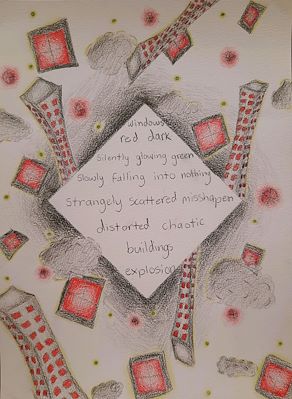 windows
red dark
Silently glowing green
Slowly falling into nothing
Strangely scattered misshapen
distorted chaotic
buildings
explosion